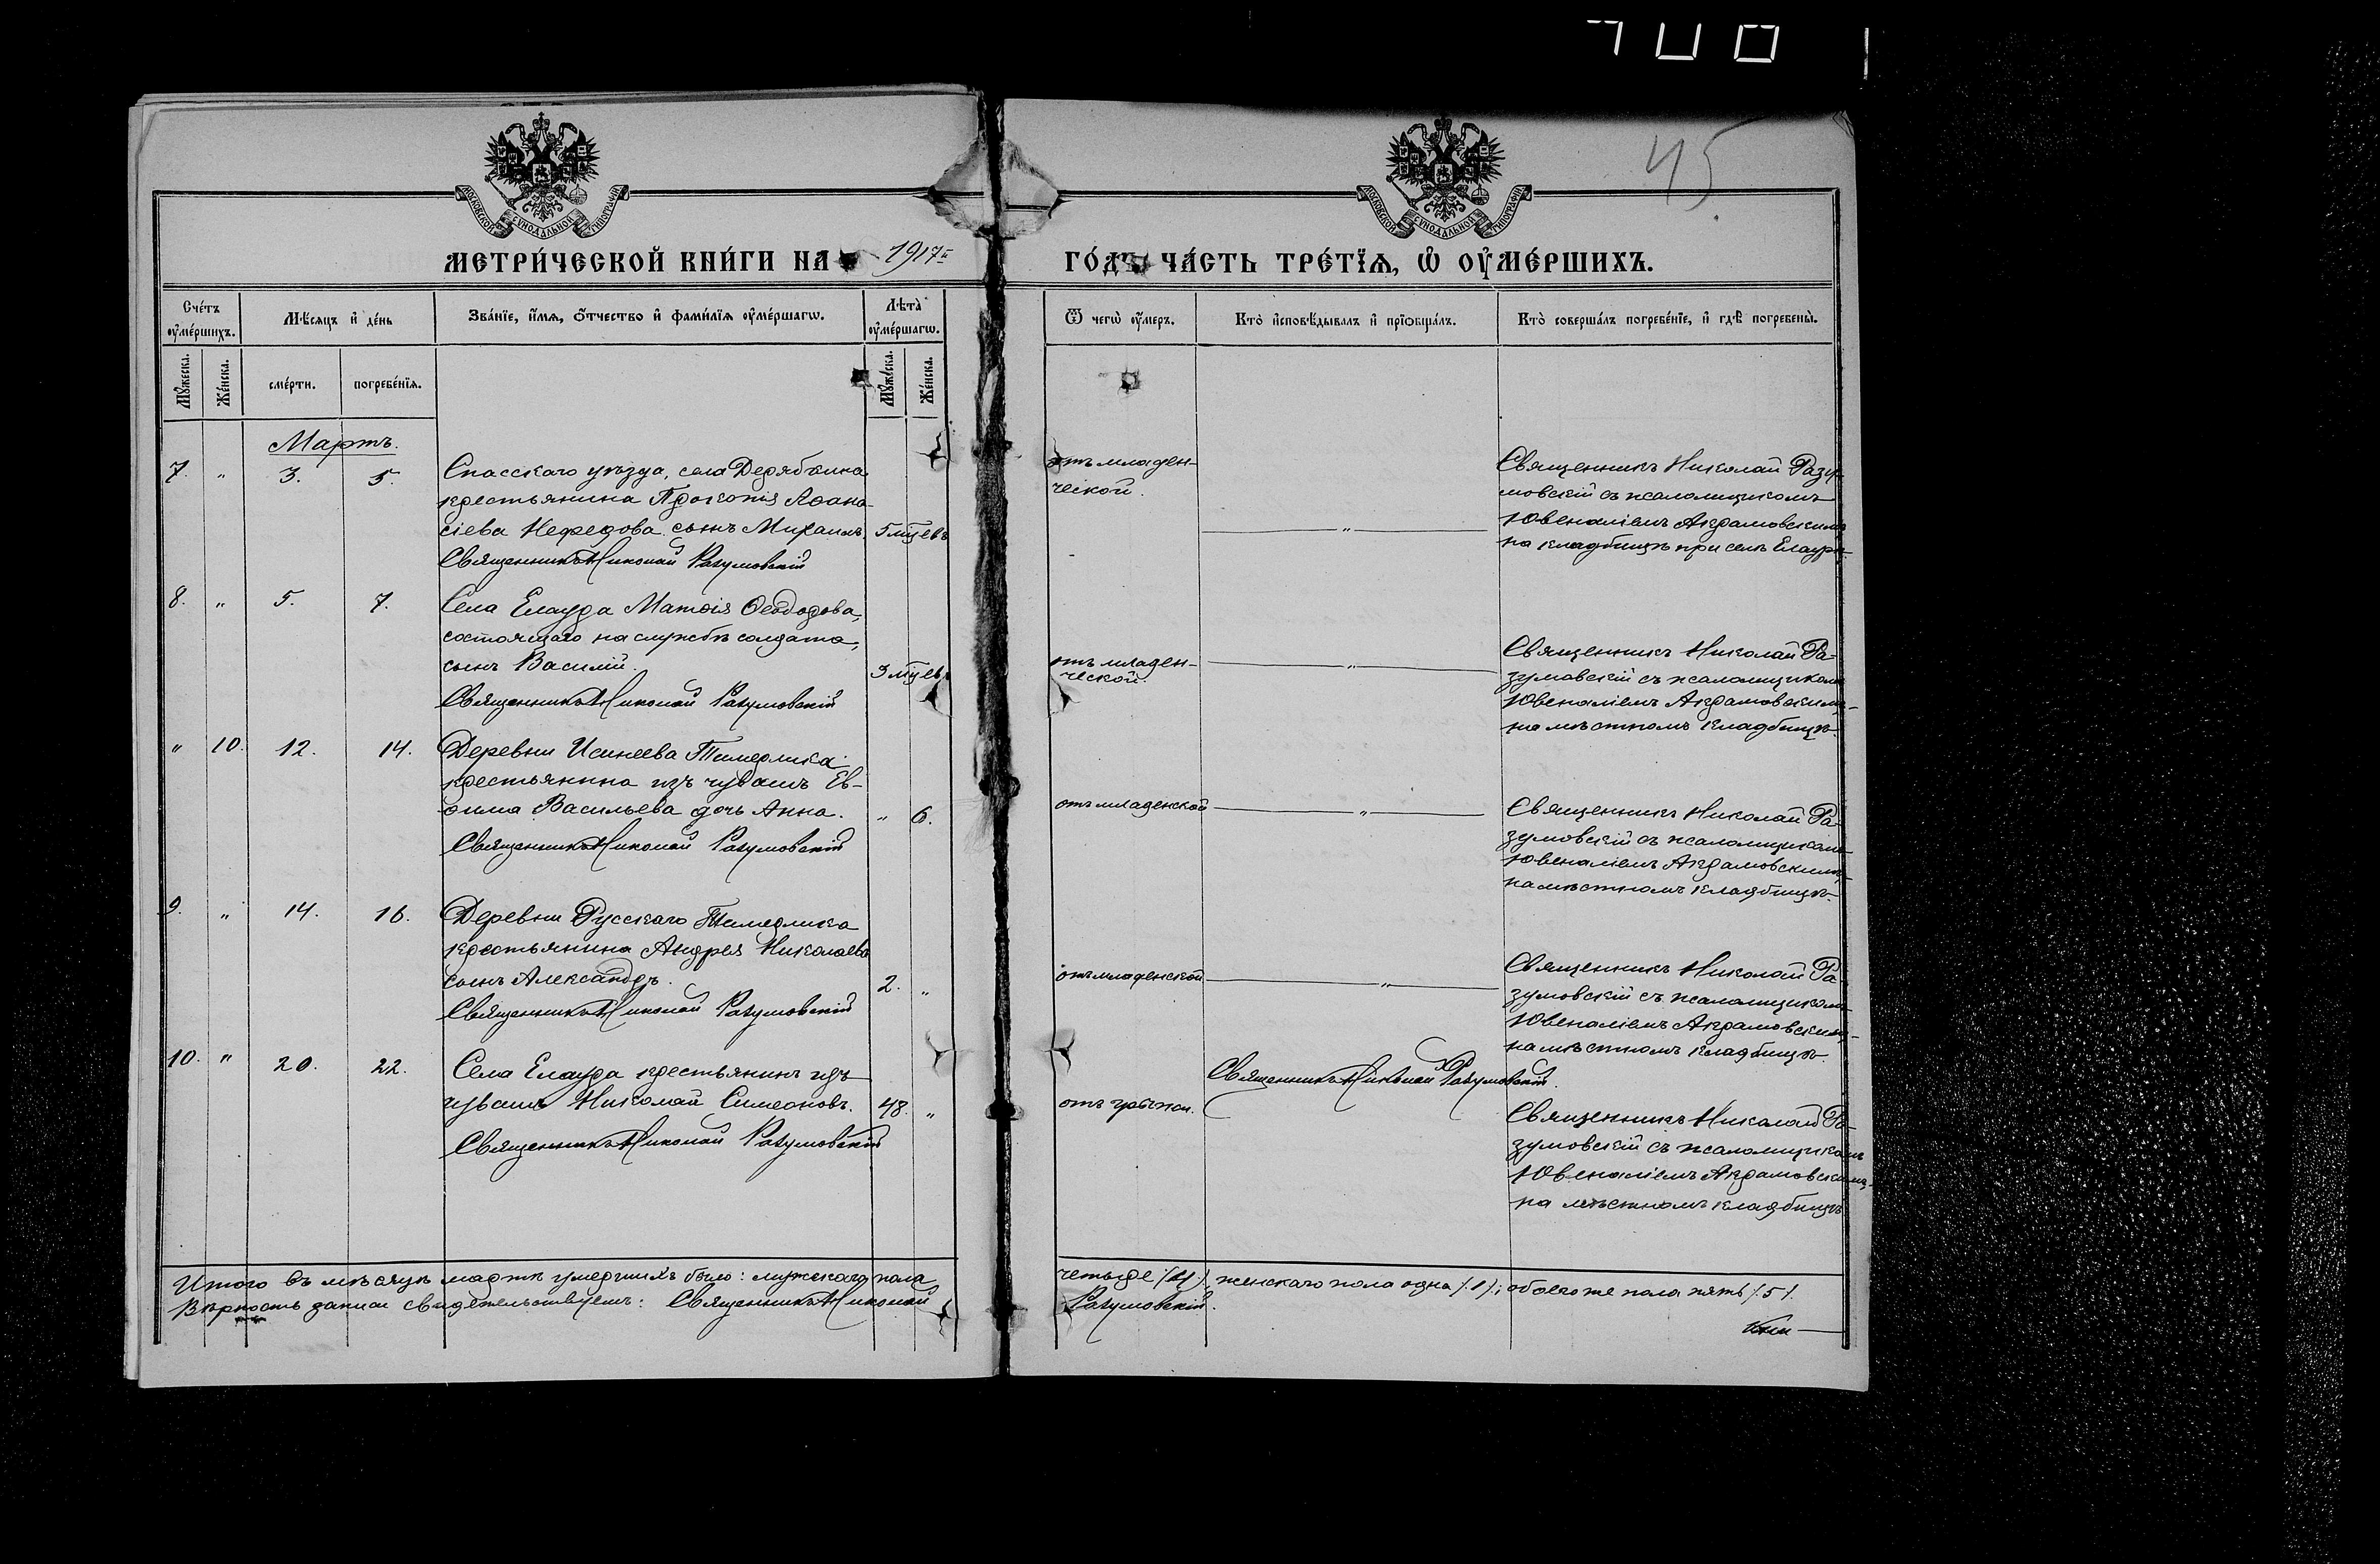 45
МЕТРИ́ЧЕСКОЙ КНИ́ГИ НА 1917 г.
ГО́ДЪ, ЧА́СТЬ ТРЕ́ТЇѦ, Ѡ ОУМЕ́РШИХЪ.
МОСКОВСКОЙ СѴНОДАЛЬНОЙ ТИПОГРАФІИ
МОСКОВСКОЙ СѴНОДАЛЬНОЙ ТИПОГРАФІИ
Сче́тъ оуме́ршихъ.
Мѣ́сяцъ и де́нь
Зва́нїе, и́мѧ, о́тчество и фами́лїѧ оуме́ршагѡ.
Лѣта̀ оуме́ршагѡ.
Ѿ чегѡ̀ оу́меръ.
Кто̀ и҆сповѣ́дывалъ и҆ прїѡбща́лъ.
Кто̀ соверша́лъ погребе́нїе, и҆ гдѣ̀ погребены̀.
Мꙋ́жеска.
Же́нска.
сме́рти.
погребе́нїѧ.
Мꙋ́жеска.
Же́нска.
Мартъ.
7. " 3. 5.
Спасскаго уѣзда, села Дерябкина
крестьянина Прокопія Аѳана-
сіева Нефедова сынъ Михаилъ. 5 мцевъ
Священникъ Николай Разумовскій
отъ младен-
ческой.
"
Священникъ Николай Разу-
мовскій съ псаломщикомъ
Ювеналіемъ Акрамовскимъ
на кладбищѣ при селѣ Елаурѣ.
8. " 5. 7.
Села Елаура Матѳія Ѳеодорова,
состоящаго на службѣ солдата,
сынъ Василій. 3 мцевъ
Священникъ Николай Разумовскій
отъ младен-
ческой.
"
Священникъ Николай Ра-
зумовскій съ псаломщикомъ
Ювеналіемъ Акрамовскимъ
на мѣстномъ кладбищѣ.
" 10. 12. 14.
Деревни Исинеева Тимерлика
крестьянина изъ чувашъ Ев-
ѳима Васильева дочь Анна. " 6.
Священникъ Николай Разумовскій
отъ младенской
"
Священникъ Николай Ра-
зумовскій съ псаломщикомъ
Ювеналіемъ Акрамовскимъ
на мѣстномъ кладбищѣ.
9. " 14. 16.
Деревни Русскаго Тимерлика
крестьянина Андрея Николаева
сынъ Александръ. 2. "
Священникъ Николай Разумовскій
отъ младенской
"
Священникъ Николай Ра-
зумовскій съ псаломщикомъ
Ювеналіемъ Акрамовскимъ
на мѣстномъ кладбищѣ.
10. " 20. 22.
Села Елаура крестьянинъ изъ
чувашъ Николай Симеоновъ. 48. "
Священникъ Николай Разумовскій
отъ
Священникъ Николай Разумовскій.
Священникъ Николай Ра-
зумовскій съ псаломщикомъ
Ювеналіемъ Акрамовскимъ
на мѣстномъ кладбищѣ
Итого въ мѣсяцѣ мартѣ умершихъ было: мужскаго пола
четыре /4/, женскаго пола одна /1/; обоего же пола пять /5/.
Вѣрность записи свидѣтельствуемъ: Священникъ Николай
Разумовскій.